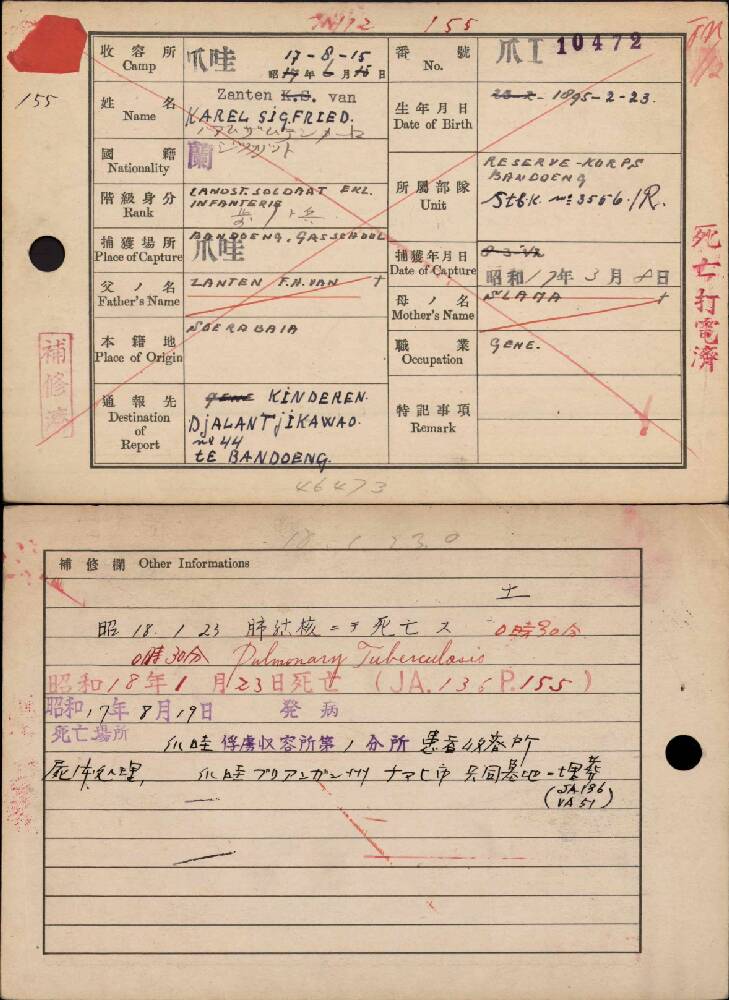 155
155
収容所 Camp
爪哇
17-8-15
昭 17 年 6 月 15 日
番號 No.
爪I 10472
姓名 Name
Zanten K.S. van
KAREL SIGFRIED.
生年月日 Date of Birth
1895-2-23.
國籍 Nationality
蘭
階級身分 Rank
LANDST. SOLDAAT EKL.
INFANTERIE
所屬部隊 Unit
RESERVE-KORPS
BANDOENG
Stbk. no 3556/R.
捕獲場所 Place of Capture
爪哇
BANDOENG. GASSCHOOL
捕獲年月日 Date of Capture
8-3-42
昭和17年3月8日
父ノ名 Father's Name
ZANTEN F.H. VAN +
母ノ名 Mother's Name
SLAMA +
本籍地 Place of Origin
SOERABAIA
職業 Occupation
GENE.
通報先 Destination of Report
GENE KINDEREN.
DJALAN TJIKAWAO.
no 44
te BANDOENG.
特記事項 Remark
死亡打電濟
補修濟
46473
18.1.23.0
補修欄 Other Informations
昭 18. 1 23 肺結核ニテ死亡ス 0時30分
0時30分 Pulmonary Tuberculosis
昭和18年1月23日死亡 (JA. 136 P. 155)
昭和17年8月19日 発病
死亡場所
爪哇俘虜収容所第1分所 患者収容所
死体処理, 爪哇プリアンガン州 チマヒ市 共同墓地ニ埋葬
(JA 136
VA 51)